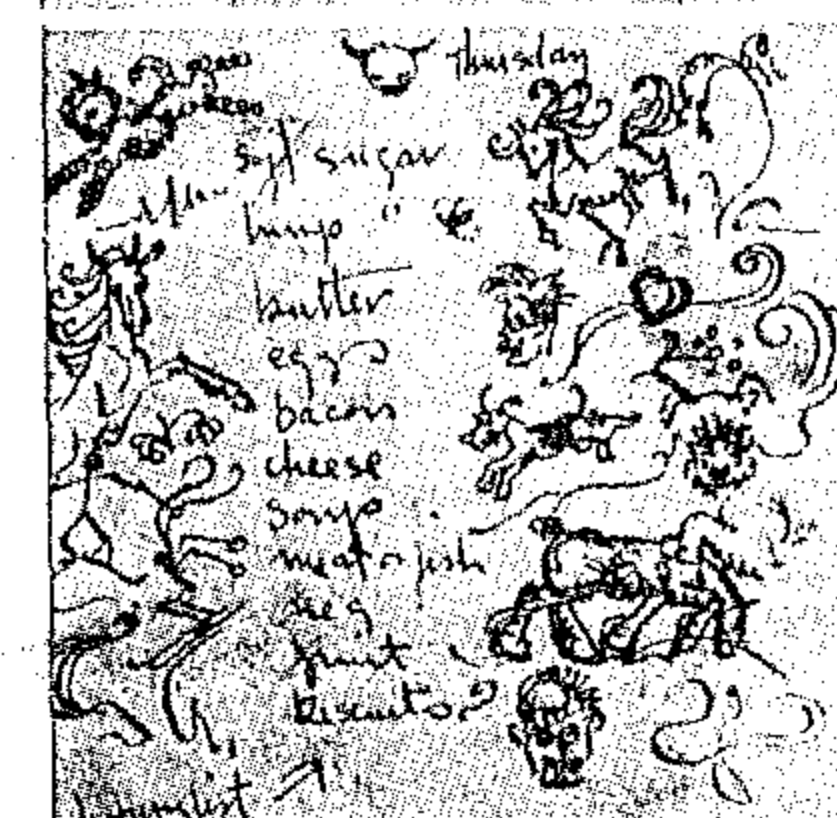 Thursday
soft sugar
lump "
butter
eggs
bacon
cheese
soup
meat or fish
veg
fruit
biscuits?